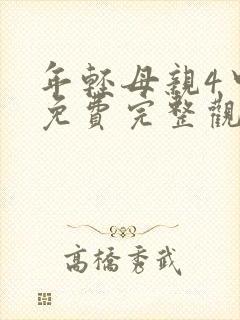 年輕母親4中
免費完整觀
高橋秀武